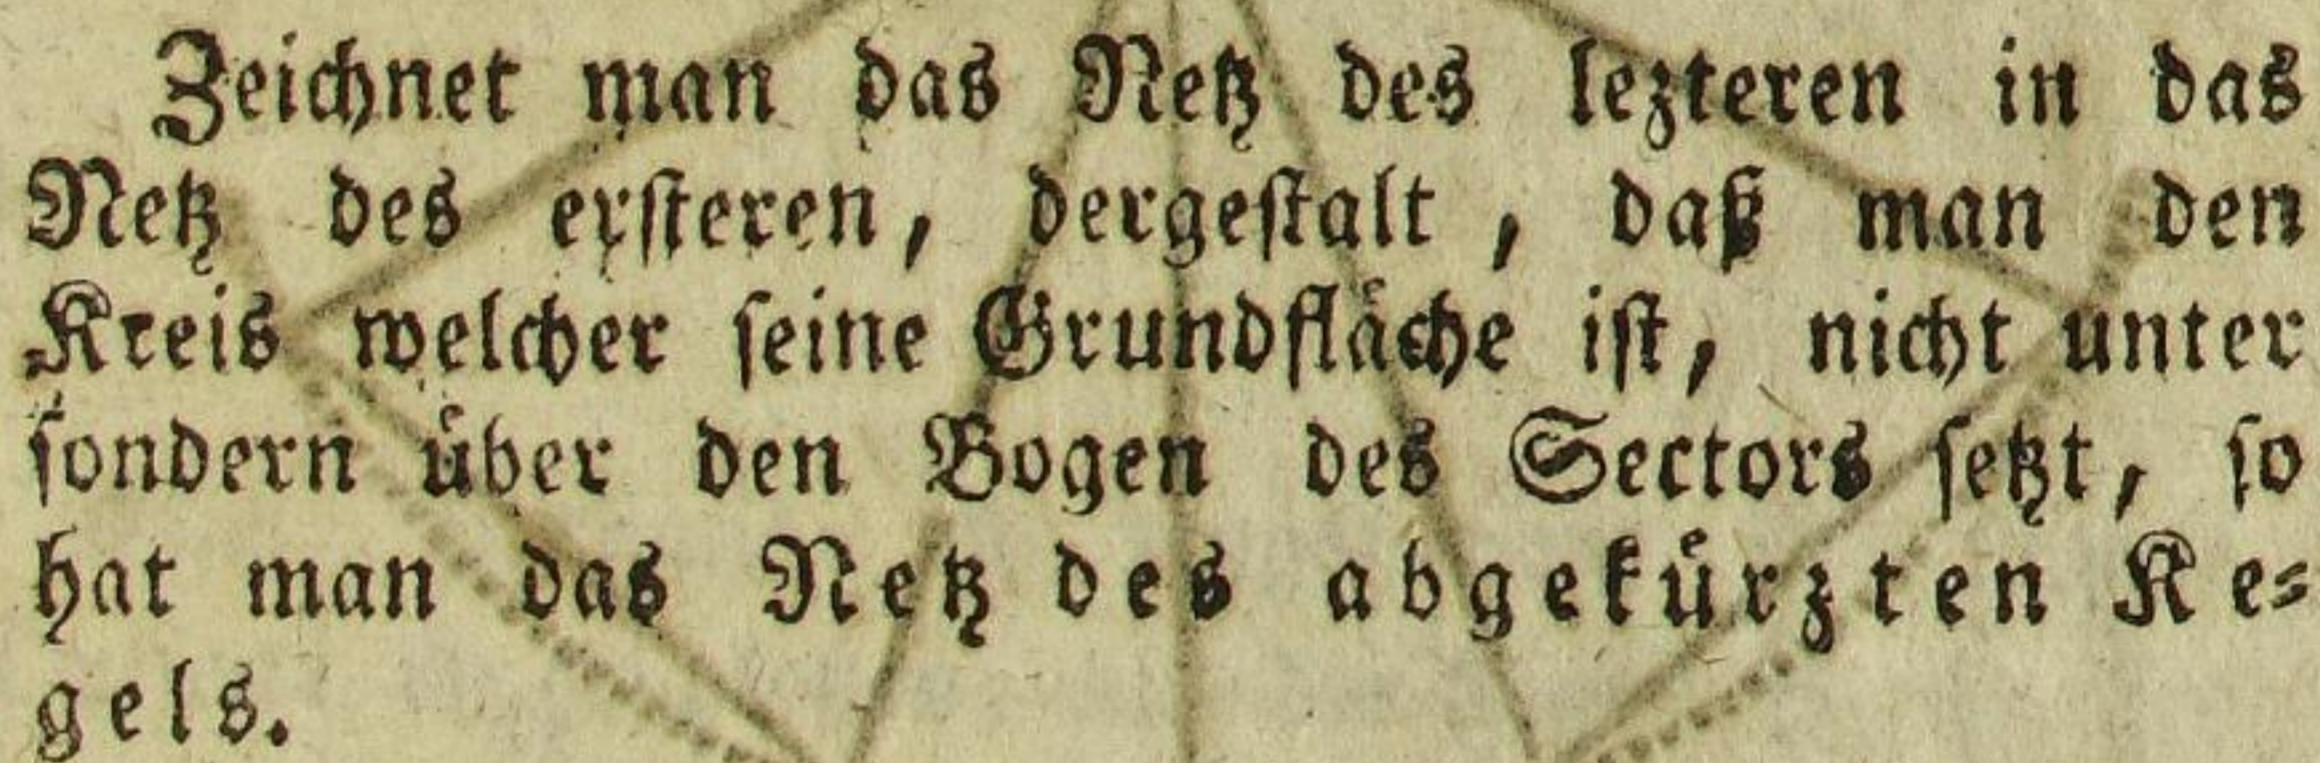 Zeichnet man das Netz des lezteren in das
Netz des ersteren, dergestalt, daß man den
Kreis welcher seine Grundfläche ist, nicht unter
sondern über den Bogen des Sectors setzt, so
hat man das Netz des abgekürzten Ke-
gels.